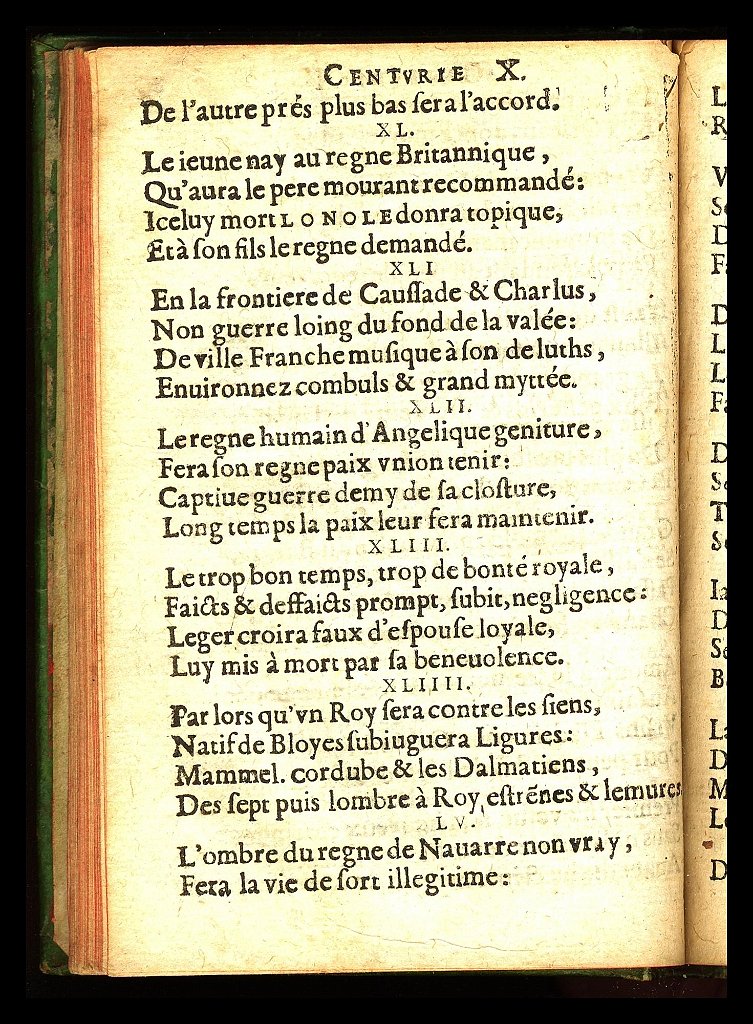 CENTVRIE X.
De l'autre prés plus bas ſera l'accord.
XL.
Le ieune nay au regne Britannique,
Qu'aura le pere mourant recommandé:
Iceluy mort LONOLE donra topique,
Et à ſon fils le regne demandé.
XLI
En la frontiere de Cauſſade & Charlus,
Non guerre loing du fond de la valée:
De ville Franche muſique à ſon de luths,
Enuironnez combuls & grand myttée.
XLII.
Le regne humain d'Angelique geniture,
Fera ſon regne paix vnion tenir:
Captiue guerre demy de ſa cloſture,
Long temps la paix leur fera maintenir.
XLIII.
Le trop bon temps, trop de bonté royale,
Faicts & deffaicts prompt, ſubit, negligence:
Leger croira faux d'eſpouſe loyale,
Luy mis à mort par ſa beneuolence.
XLIIII.
Par lors qu'vn Roy ſera contre les ſiens,
Natif de Bloyes ſubiuguera Ligures:
Mammel. cordube & les Dalmatiens,
Des ſept puis lombre à Roy eſtrẽnes & lemures
LV.
L'ombre du regne de Nauarre non vray,
Fera la vie de ſort illegitime: